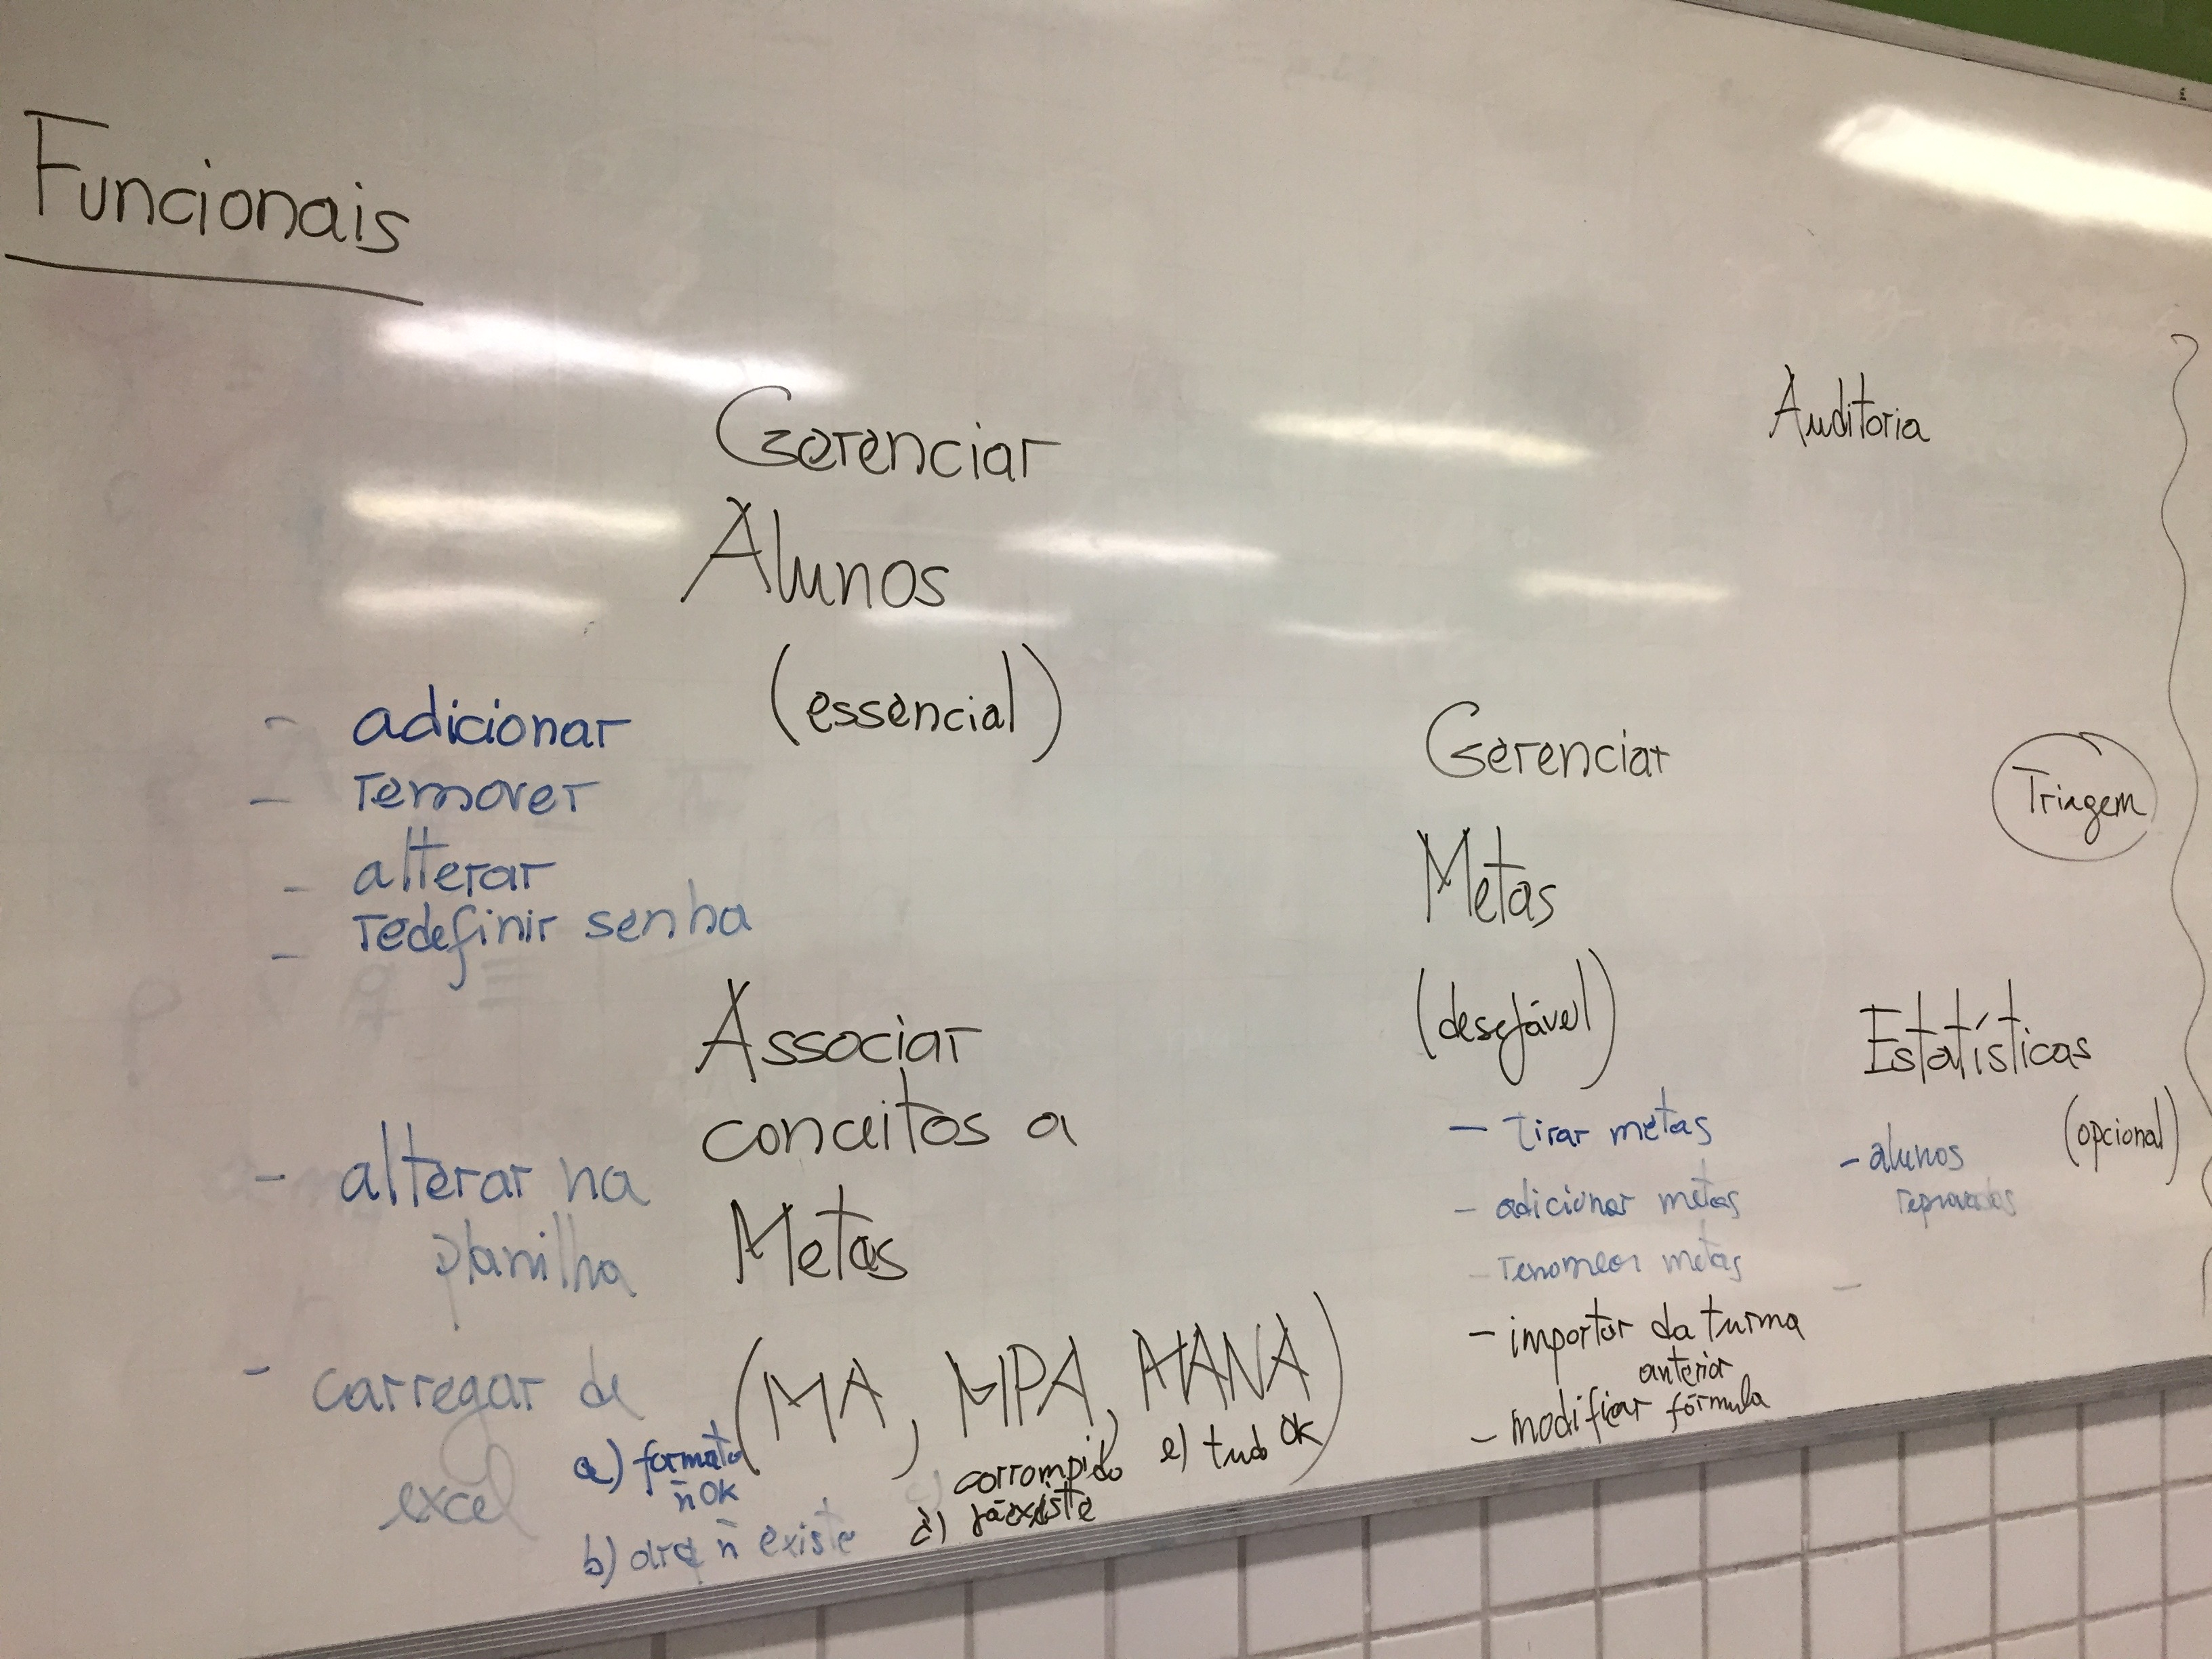 Funcionais
Gerenciar
Alunos
(essencial)
- adicionar
- remover
- alterar
- redefinir senha
Associar
conceitos a
Metas
(MA, MPA, MANA)
- alterar na
planilha
- carregar de
excel
a) formato
ñ OK
b) arq ñ existe
c) corrompido
d) já existe
e) tudo OK
Auditoria
Gerenciar
Metas
(desejável)
- tirar metas
- adicionar metas
- renomear metas
- importar da turma
anterior
- modificar fórmula
Triagem
Estatísticas
(opcional)
- alunos
reprovados
-